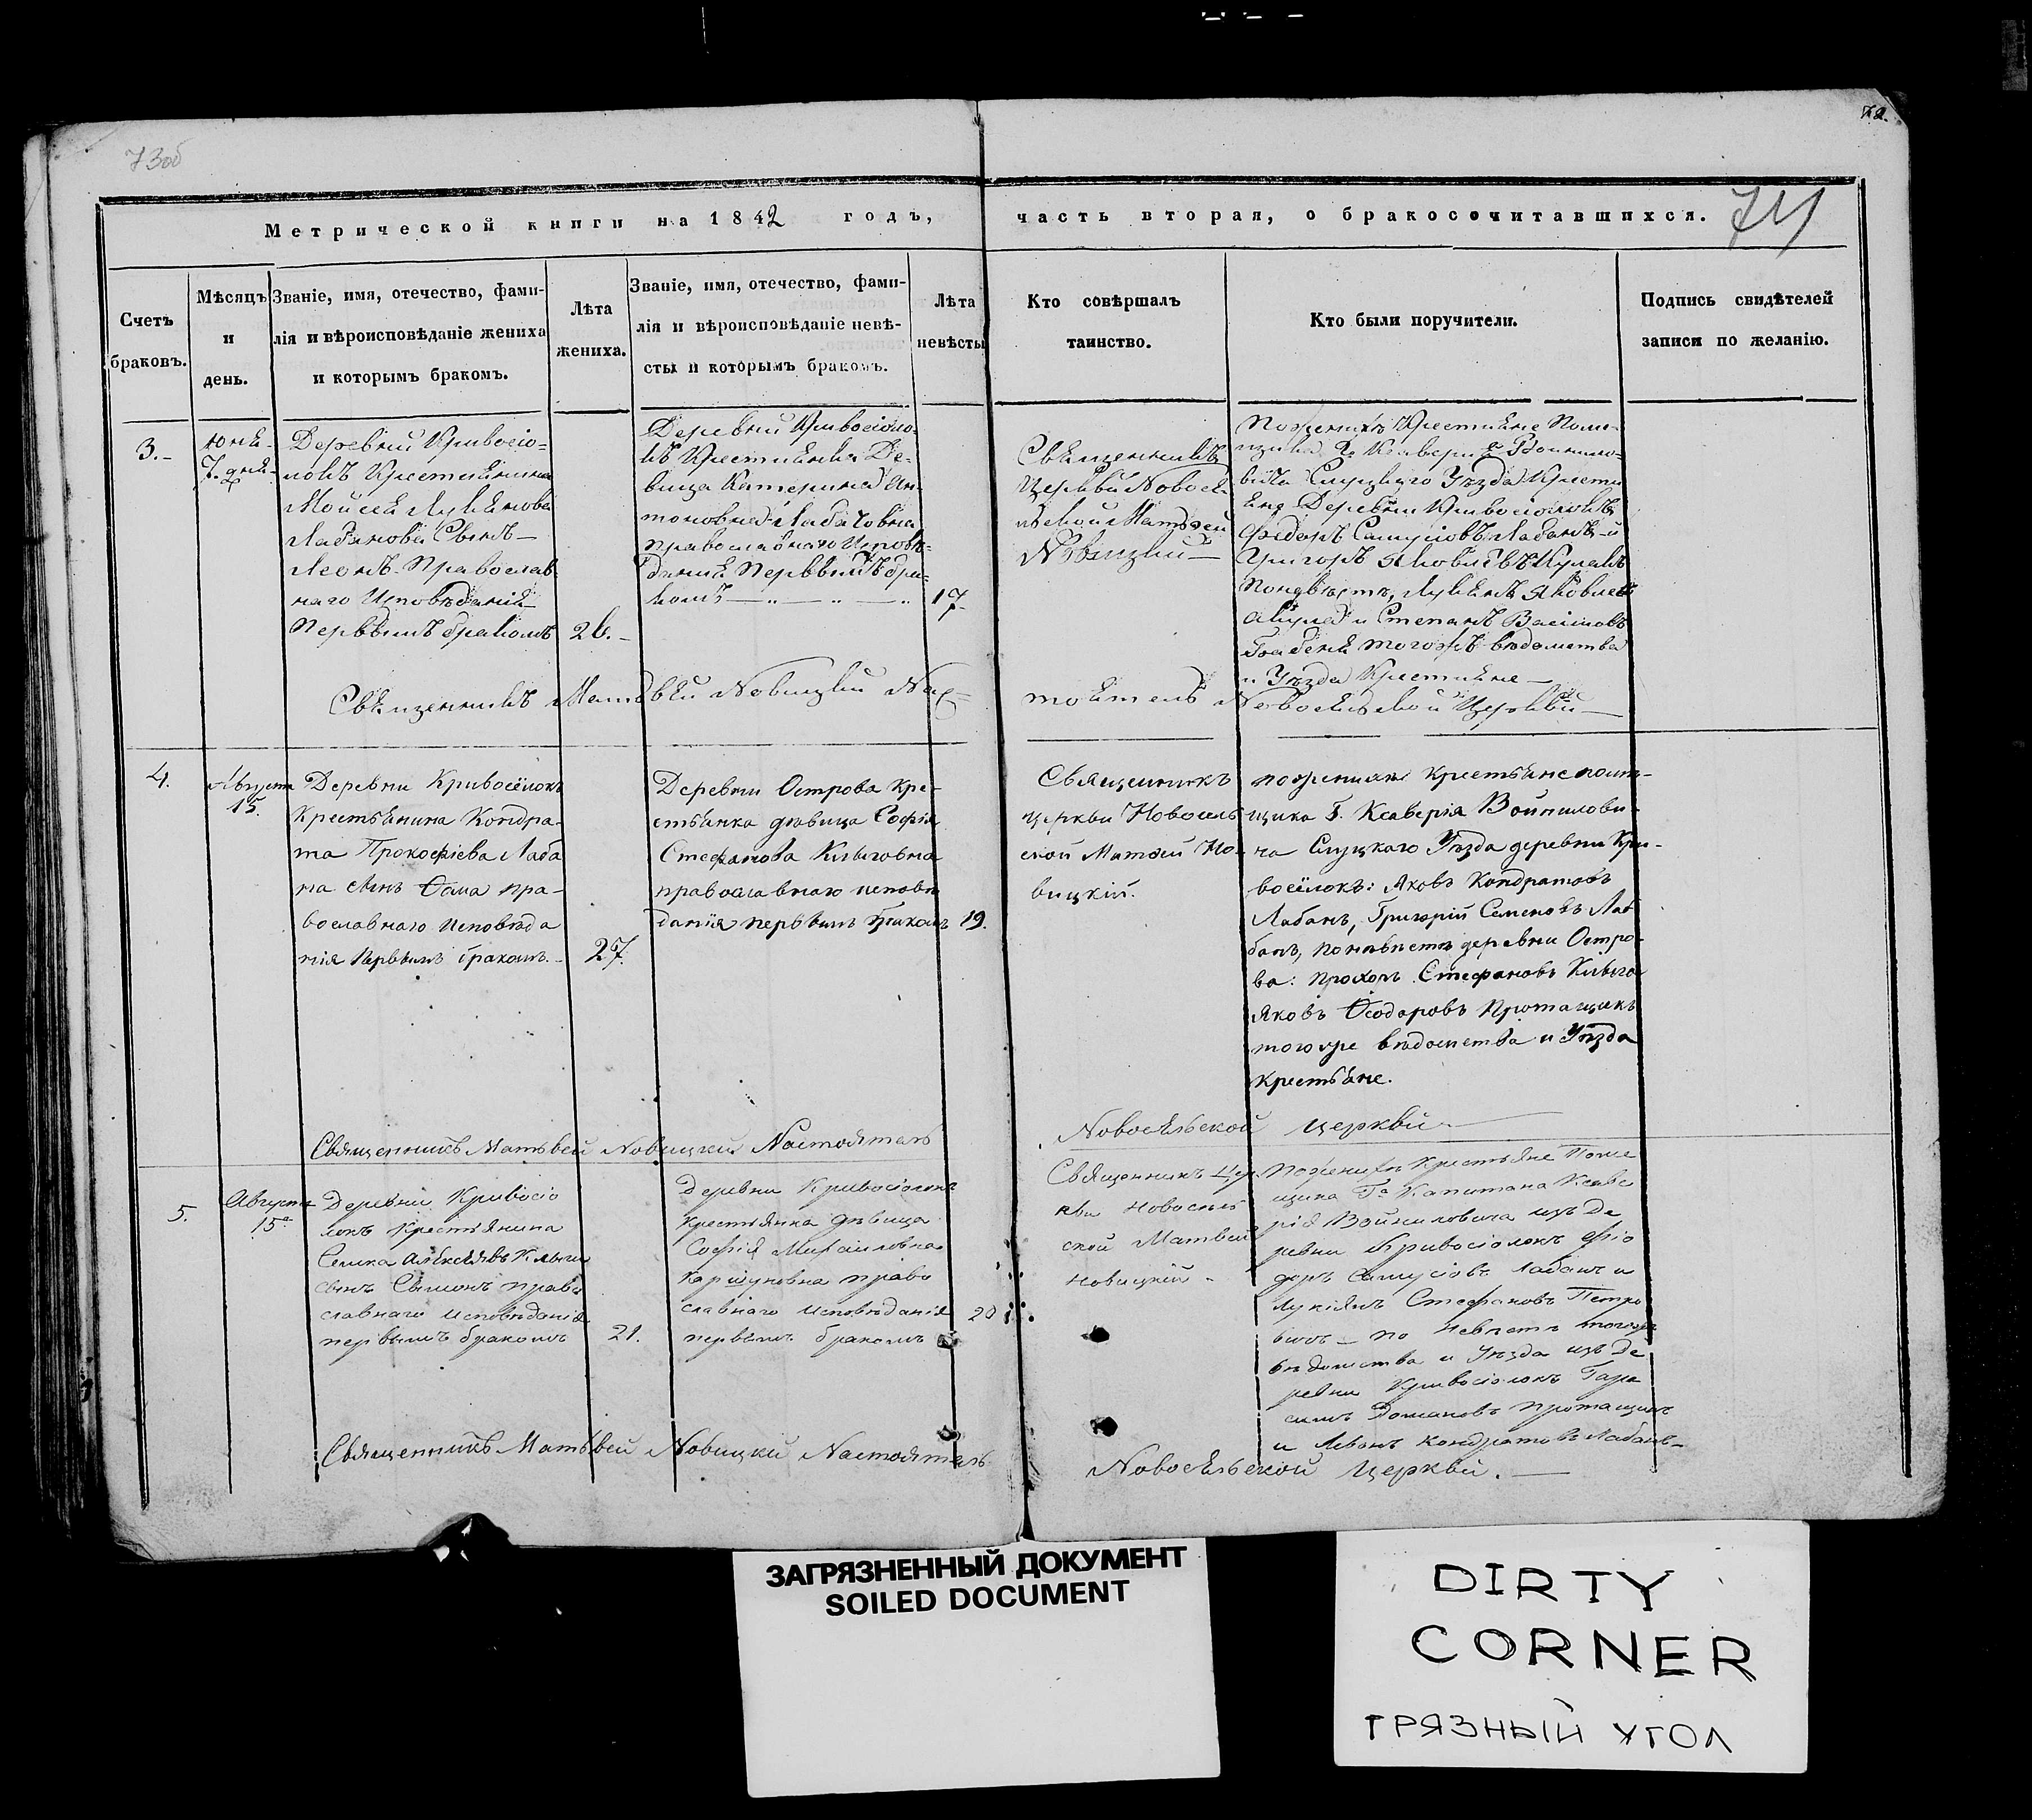 73об
72.
74
Метрической книги на 1842 годъ, часть вторая, о бракосочитавшихся.
Счетъ браковъ.
Мѣсяцъ и день.
Званіе, имя, отечество, фами-
лія и вѣроисповѣданіе жениха
и которымъ бракомъ.
Лѣта жениха.
Званіе, имя, отечество, фами-
лія и вѣроисповѣданіе невѣ-
сты и которымъ бракомъ.
Лѣта невѣсты
Кто совѣршалъ
таинство.
Кто были поручители.
Подпись свидѣтелей
записи по желанію.
3.
7.
Деревни Кривосіо-
локъ Крестьянина
Мойсея
Лабанова Сынъ
Леонъ Православ
наго Исповѣданія
Первымъ бракомъ
26.
Деревни Кривосіоло-
къ Крестьянка Дѣ-
вица Катерина Ан-
тоновна Лабаховна
православнаго Исповѣ-
данія Первымъ бра-
комъ
17
Священникъ
Церкви Новосѣ
льской Матѳей
Новицкій
Слуцкаго Уѣзда Крестья
яне Деревни Кривосіолокъ
Лабанъ и
Григоръ
Степанъ
тогожъ вѣдомства
и Уѣзда Крестьяне
Священникъ Матвѣй Новицкій Нас=
тоятель Новосѣльской Церкви
4.
Августа
15.
Деревни Кривосёлокъ
Крестьянина Кондра-
та Прокофіева Лаба
на сынъ Ѳома пра-
вославнаго исповѣда
нія первымъ бракомъ.
27.
Деревни Острова кре-
стьянка дѣвица Софія
Стефанова Кулыговна
православнаго исповѣ
данія первымъ бракомъ
19.
Священникъ
церкви Новосель
ской Матѳей Но-
вицкій.
по женихѣ крестьяне помѣ-
щика Г. Ксаверія Войнилови-
ча Слуцкаго Уѣзда деревни Кри-
восёлокъ: Яковъ Кондратовъ
Лабанъ, Григорій Семеновъ Ла-
банъ, по невѣстѣ деревни Остро-
ва: Прохоръ Стефановъ
Яковъ Ѳеодоровъ Протащикъ
того же вѣдомства и Уѣзда
крестьяне.
Священникъ Матьвей Новицкий Настоятель
Новосѣльской церкви
5.
Августа
15
Деревни Кривосіо
локъ крестьянина
сынъ Сымонъ право
славнаго исповѣданія
первымъ бракомъ
21.
Деревни Кривосіолокъ
крестьянка дѣвица
Софія Михаиловна
Каршуновна право
славнаго исповѣданія
первымъ бракомъ
20
Священникъ Цер
кви Новосель
ской Матвей
Новицкій
По женихѣ крестьяне Поме
щика Гна Капитана Ксаве
рія Войниловича изъ де
ревни Кривосіолокъ Фіо
доръ Самусіовъ Лабанъ и
Лукіянъ Стефановъ Петро
по невѣстѣ тогожъ
вѣдомства и Уѣзда изъ де
ревни Кривосіолокъ Гара
симъ Домановъ Протащикъ
и Леванъ Кондратовъ Лабанъ
Священникъ Матьвей Новицкий Настоятель
Новосѣльской церкви.
ЗАГРЯЗНЕННЫЙ ДОКУМЕНТ
SOILED DOCUMENT
DIRTY
CORNER
ГРЯЗНЫЙ УГОЛ